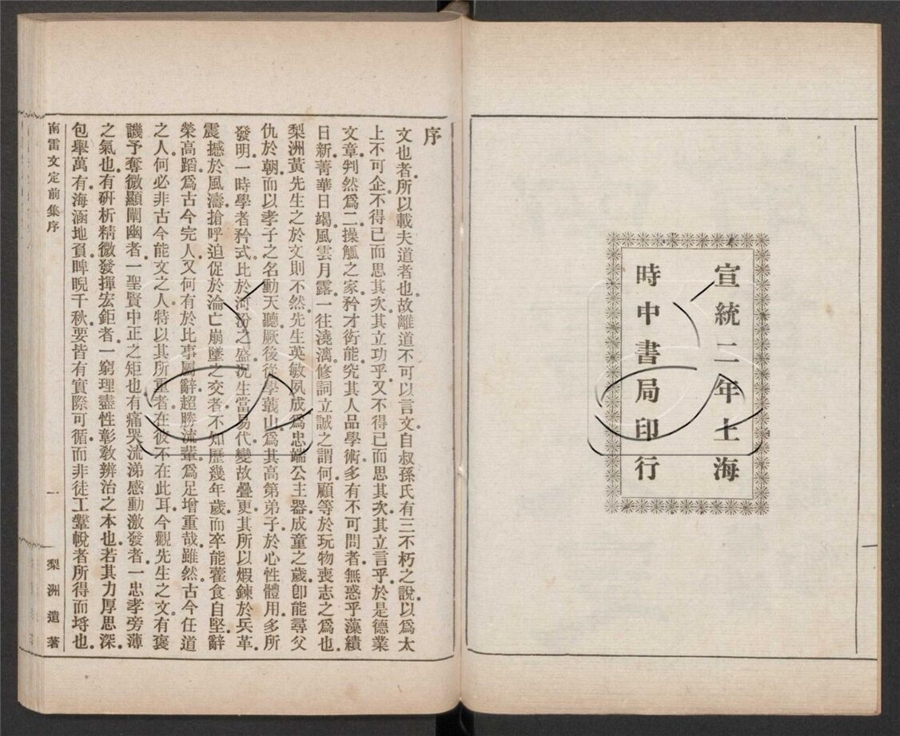 宣統二年上海
時中書局印行
序
文也者所以載夫道者也故離道不可以言文自叔孫氏有三不朽之說以爲太
上不可企不得已而思其次其立功乎又不得已而思其次其立言乎於是德業
文章判然爲二操觚之家矜才衒能究其人品學術多有不可問者無惑乎藻繢
日新菁華日竭風雲月露一往澆漓修詞立誠之謂何顧等於玩物喪志之爲也
梨洲黃先生之於文則不然先生英敏夙成爲忠端公主器成童之歲卽能尋父
仇於朝而以孝子之名動天聽厥後從學蕺山爲其高第弟子於心性體用多所
發明一時學者矜式比於河汾之盛況生當易代變故疊更其所以煆鍊於兵革
震撼於風濤搶呼迫促於淪亡崩墜之交者不知歷幾年歲而卒能藿食自堅辭
榮高蹈爲古今完人又何有於比事屬辭超勝流輩爲足增重哉雖然古今任道
之人何必非古今能文之人特以其所重者在彼不在此耳今觀先生之文有褒
譏予奪微顯闡幽者一聖賢中正之矩也有痛哭流涕感動激發者一忠孝旁薄
之氣也有硏析精微發揮宏鉅者一窮理盡性彰教辨治之本也若其力厚思深
包舉萬有海涵地負睥睨千秋要皆有實際可循而非徒工鞶帨者所得而埒也
南雷文定前集序
一
梨洲遺著